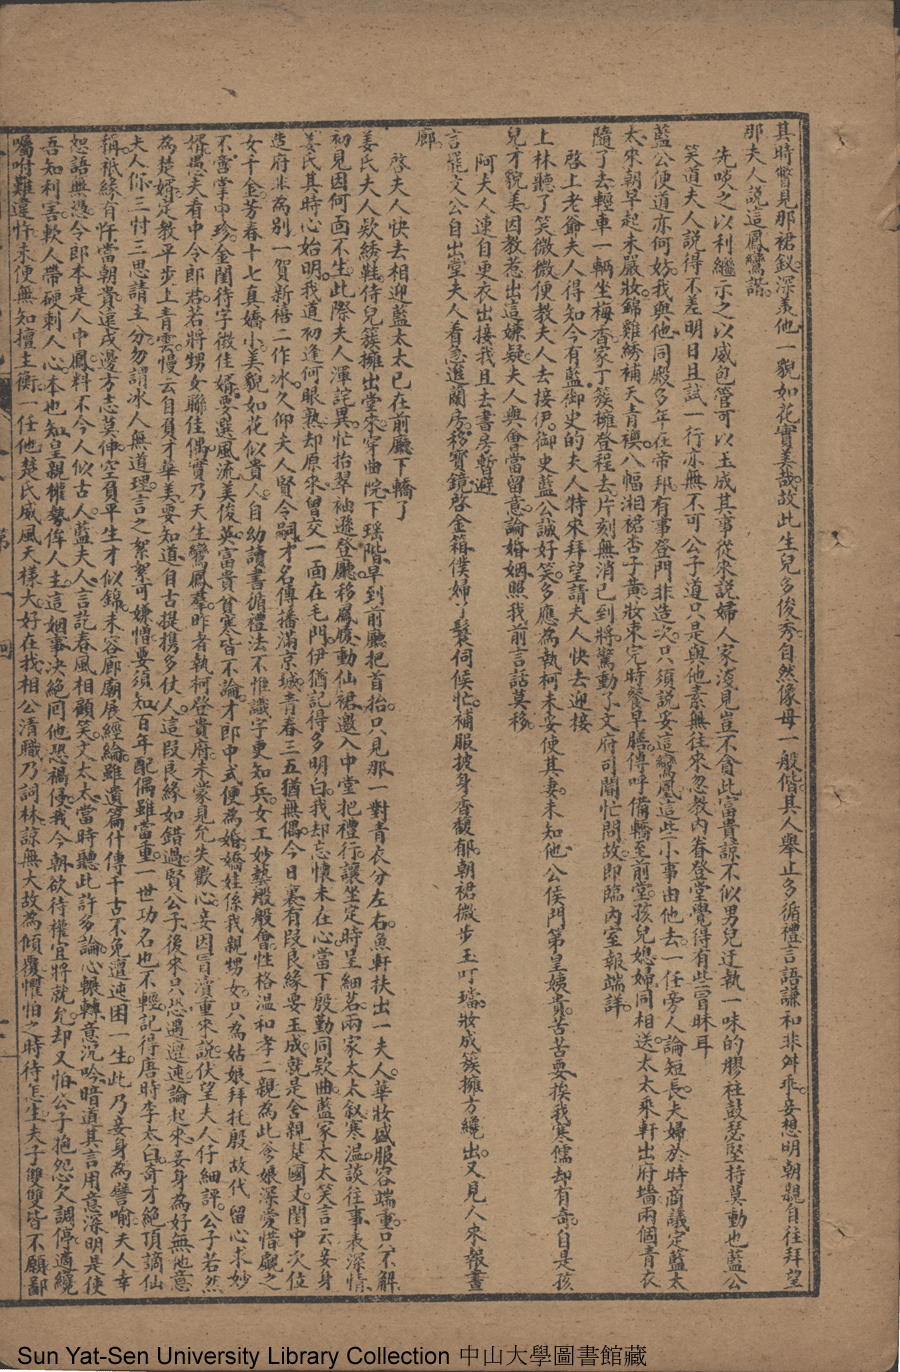 其時瞥見那裙釵深羨他一貌如花實美哉故此生兒多俊秀自然像母一般偕其人舉止多循禮言語謙和非舛乖妾想明朝親自往拜望
那夫人説這鳳鸞諧
先啖之以利繼示之以威包管可以玉成其事從來説婦人家淺見豈不貪此富貴諒不似男兒迂執一味的膠柱鼓瑟堅持莫動也藍公
笑道夫人說得不差明日且試一行亦無不可公子道只是與他素無往來忽教内眷登堂覺得有些冒昧耳
藍公便道亦何妨我與他同殿多年在帝邦有事登門非造次只須説妥這鸞凰這些小事由他去一任旁人論短長夫婦於時商議定藍太
太來朝早起未嚴妝錦雞綉補天青襖八幅湘裙杏子黄妝束完時餐早膳傳呼備轎至前堂孩兒媳婦同相送太太乘軒出府墻兩個青衣
隨了去輕車一輛坐梅香家丁簇擁登程去片刻無消已到將驚動了文府司閽忙問故即臨内室報端詳
啓上老爺夫人得知今有藍御史的夫人特來拜望請夫人快去迎接
上林聽了笑微微便教夫人去接伊御史藍公誠好笑多應為執柯未妥使其妻未知他公侯門第皇姨貴苦苦要挨我寒儒却有奇自是孩
兒才貌美因教惹出這嫌疑夫人與會當留意論婚姻照我前言話莫移
阿夫人速自更衣出接我且去書房暫避
言罷文公自出堂夫人看急進蘭房移寳鏡啓金箱僕婦丫鬟伺候忙補服披身香馥郁朝裙微步玉叮璫妝成簇擁方纔出又見人來報畫
廊
啓夫人快去相迎藍太太已在前廳下轎了
姜氏夫人欵綉鞋侍兒簇擁出堂來穿曲院下瑶階早到前廳把首抬只見那一對青衣分左右魚軒扶出一夫人華妝盛服容端重只不解
初見因何面不生此際夫人渾詫異忙抬翠袖遜登廳移鳳履動仙裙邀入中堂把禮行讓坐定時呈細茗兩家太太叙寒温談往事表深情
姜氏其時心始明我道初逢何眼熟却原來曾交一面在毛門伊猶記得多明白我却忘懷未在心當下殷勤同欵曲藍家太太笑言云妾身
造府非為别一賀新禧二作冰久仰夫人賢令嗣才名傳播滿京城青春三五猶無偶今日裏有段良緣要玉成就是舍親楚國丈閨中次位
女千金芳春十七真嬌小美貌如花似貴人自幼讀書循禮法不惟識字更知兵女工妙藝般般會性格温和孝二親為此爹娘深愛惜觀之
不啻掌中珍金閨待字徵佳婿要選風流美俊英富貴貧寒皆不論才郎中式便為婚嬌娃係我親甥女只為姑娘拜托殷故代留心求妙
婿愚夫看中令郎君若將甥女聯佳偶實乃天生鸞鳳羣昨者執柯登貴府未蒙見允失歡心妾因冒瀆重來説伏望夫人仔細評公子若然
為楚婿定教平步上青雲慢云自負才華美要知道自古提携多仗人這段良緣如錯過賢公子後來只恐遇邅迍論起來妾身為好無他意
夫人你三忖三思請主分勿謂冰人無道理言之絮絮可嫌憎要須知百年配偶雖當重一世功名也不輕記得唐時李太白奇才絶頂謫仙
稱祇緣有忤當朝貴遠戍邊方志莫伸空負平生才似錦未容廊廟展經綸雖遺篇什傳千古不免遭迍困一生此乃妾身為譬喻夫人幸
恕語無憑令郎本是人中鳳料不今人似古人藍夫人言訖春風相顧笑文太太當時聽此許多論心輾轉意沉吟暗道其言用意深明是使
吾知利害軟人帶硬刺人心本也知皇親權勢侔人主這姻事决絶囘他恐禍侵我今朝欲待權宜將就允却又怕公子抱怨久調停適纔
囑咐難違忤未便無知擅主衡一任他楚氏威風天樣大好在我相公清職乃詞林諒無大故為傾覆懼怕之時待怎生夫子雙雙皆不願鄙
第一囘
Sun Yat-Sen University Library Collection 中山大學圖書館藏